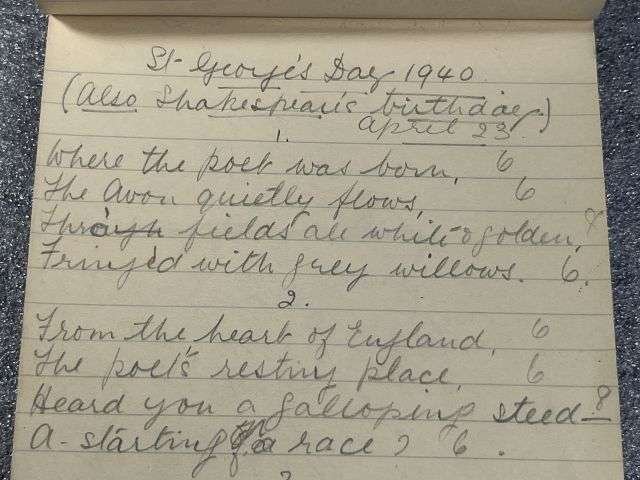 St. George's Day 1940.
(Also Shakespear's birthday.)
April 23.
1.
Where the poet was born, 6
The Avon quietly flows, 6
Through fields all white & golden, 8
Fringed with grey willows. 6.
2.
From the heart of England, 6
The poet's resting place, 6
Heard you a galloping steed— 8
A-starting a race? 6.